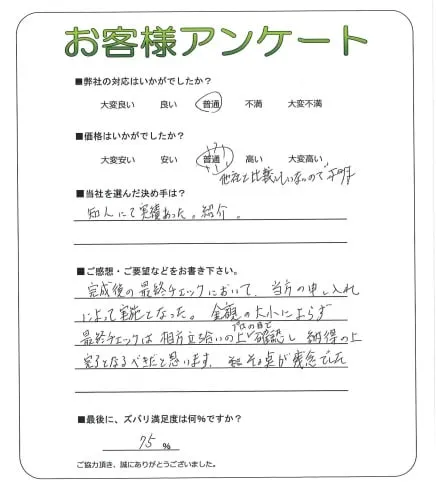 お客様アンケート
■弊社の対応はいかがでしたか？
大変良い　良い　普通　不満　大変不満
■価格はいかがでしたか？
大変安い　安い　普通　高い　大変高い
他社と比較していないので不明
■当社を選んだ決め手は？
知人にて実績あった。紹介。
■ご感想・ご要望などをお書き下さい。
完成後の最終チェックにおいて、当方の申し入れ
によって実施となった。金額の大小によらず
プロの目で
最終チェックは相方立ち会いの上で確認し納得の上
完了となるべきだと思います。その点が残念でした
■最後に、ズバリ満足度は何%ですか？
75 %
ご協力頂き、誠にありがとうございました。